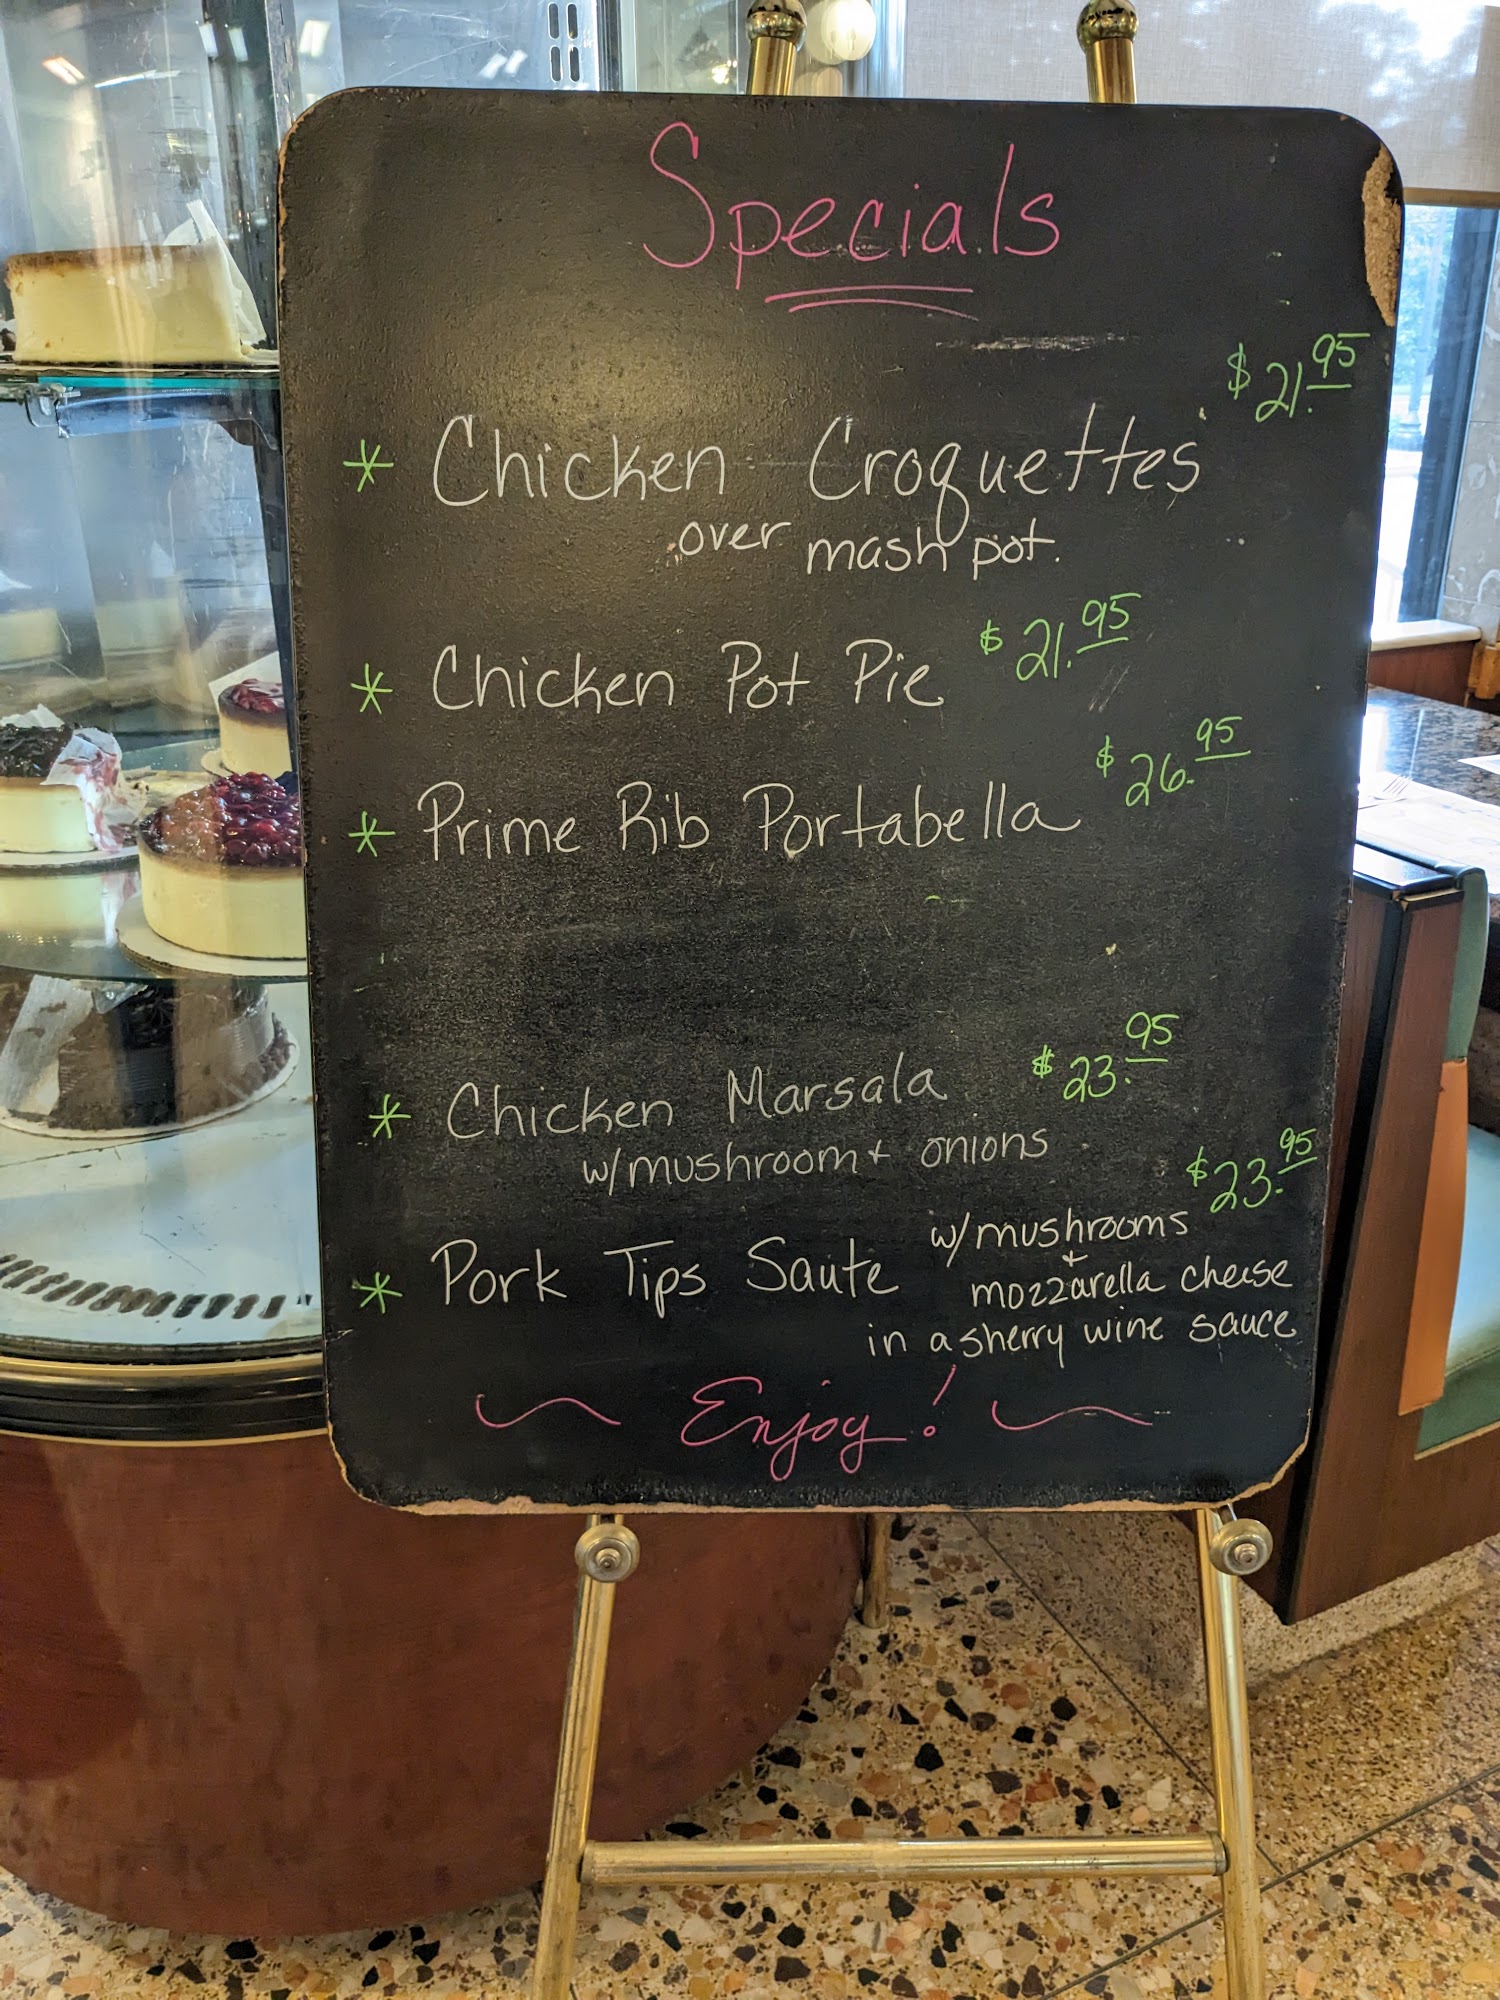 Specials
* Chicken Croquettes $21.95
over mash pot.
* Chicken Pot Pie $21.95
* Prime Rib Portabella $26.95
* Chicken Marsala $23.95
w/mushroom + onions
* Pork Tips Saute w/mushrooms $23.95
+
mozzarella cheese
in a sherry wine sauce
~ Enjoy! ~